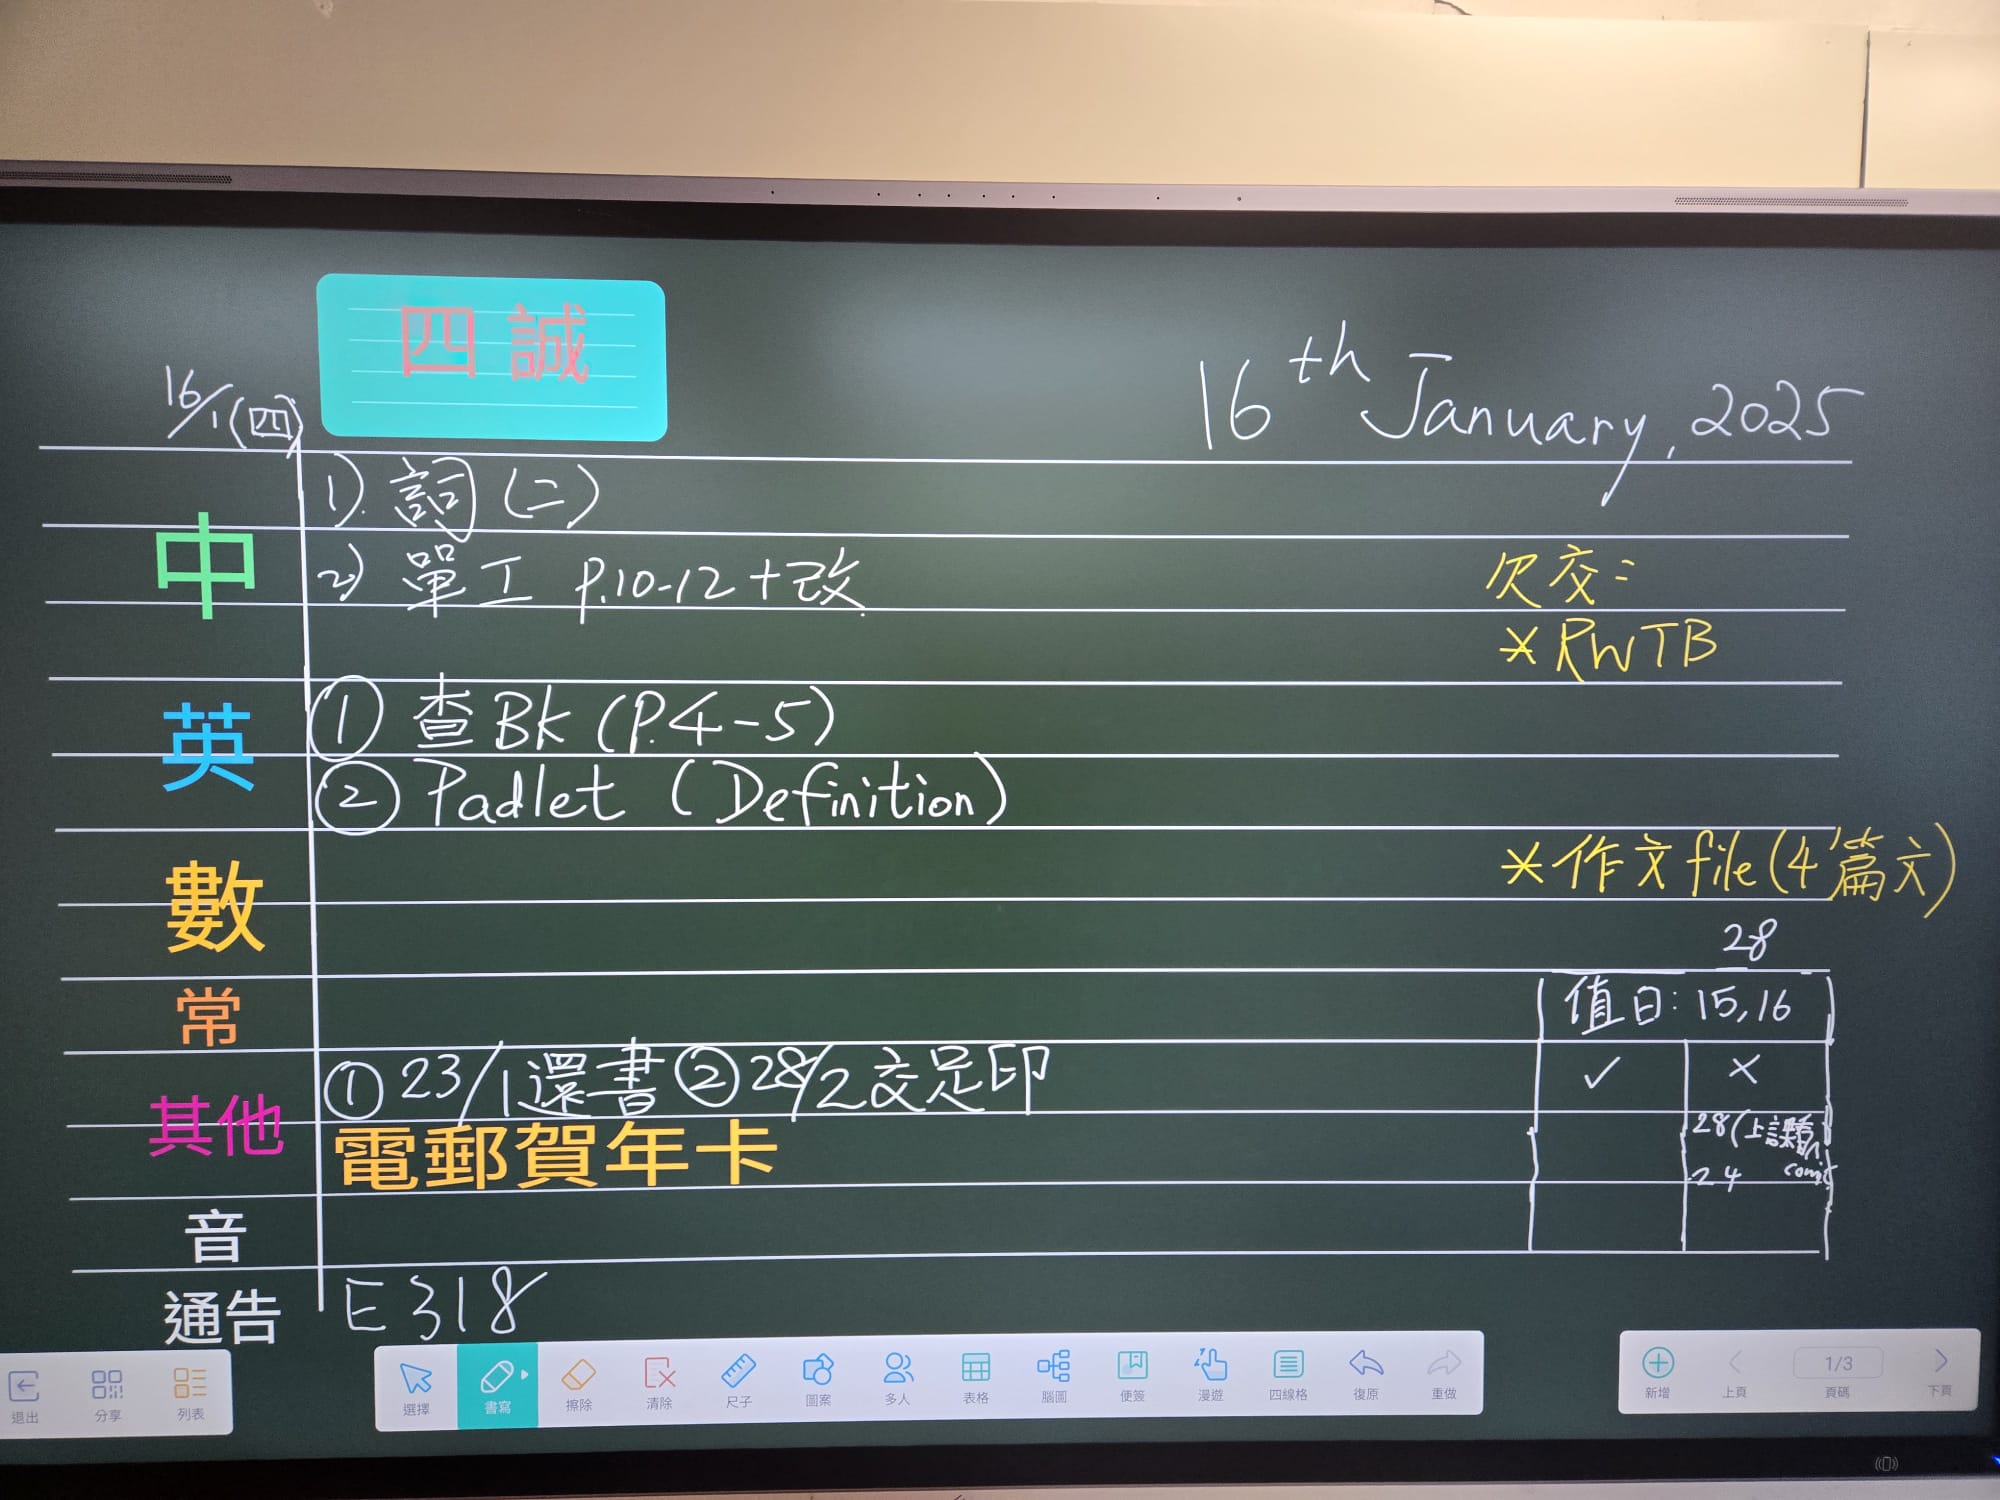 四 誠
16/1(四)
16th January, 2025
中
1). 詞(二)
2) 單工 P.10-12+改
欠交:
*RWTB
英
① 查Bk (P.4-5)
② Padlet (Definition)
數
*作文file(4篇文)
28
常
值日: 15,16
✓ ×
其他
① 23/1還書 ② 28/2交足印
電郵賀年卡
28(上課看
24 comic
音
通告
E318
退出 分享 列表
選擇 書寫 擦除 清除 尺子 圖案 多人 表格 腦圖 便簽 漫遊 四線格 復原 重做
新增 上頁 1/3 頁碼 下頁